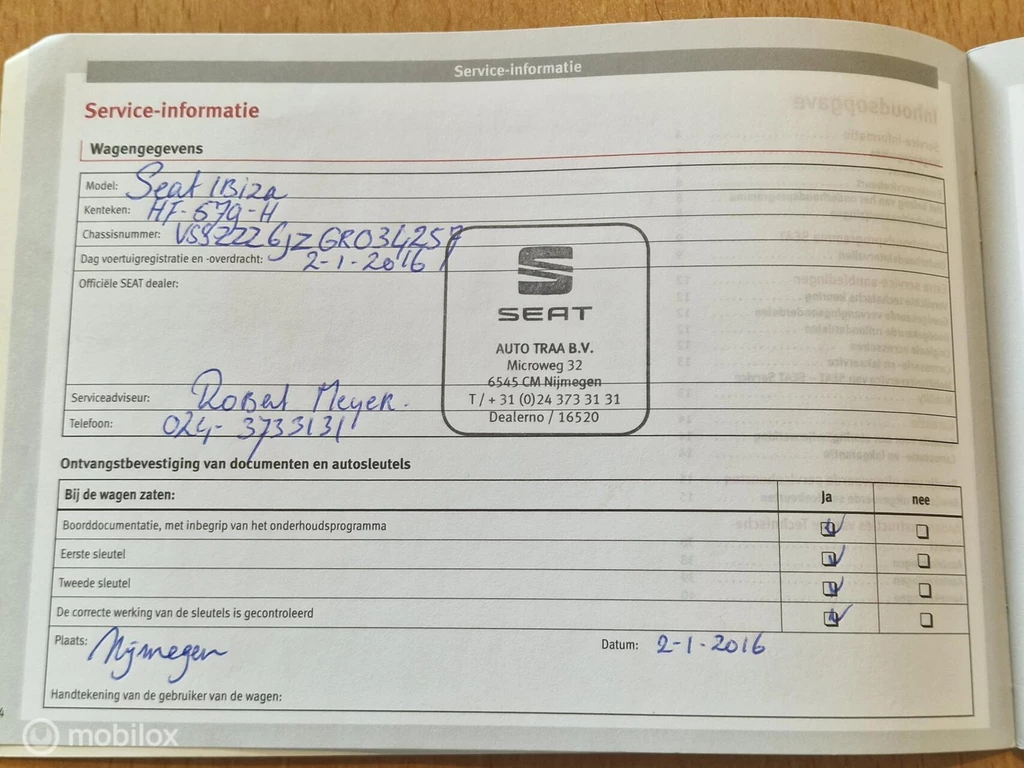 Service-informatie
Service-informatie
Wagengegevens
Model: Seat IBiza
Kenteken: HF-679-H
Chassisnummer: VSSZZZ6JZGR034257
Dag voertuigregistratie en -overdracht: 2-1-2016
Officiële SEAT dealer:
SEAT
AUTO TRAA B.V.
Microweg 32
6545 CM Nijmegen
T / + 31 (0)24 373 31 31
Dealerno / 16520
Serviceadviseur: Robert Meyer.
Telefoon: 024-3733131
Ontvangstbevestiging van documenten en autosleutels
Bij de wagen zaten: Ja nee
Boorddocumentatie, met inbegrip van het onderhoudsprogramma
Eerste sleutel
Tweede sleutel
De correcte werking van de sleutels is gecontroleerd
Plaats: Nijmegen Datum: 2-1-2016
Handtekening van de gebruiker van de wagen:
4
mobilox